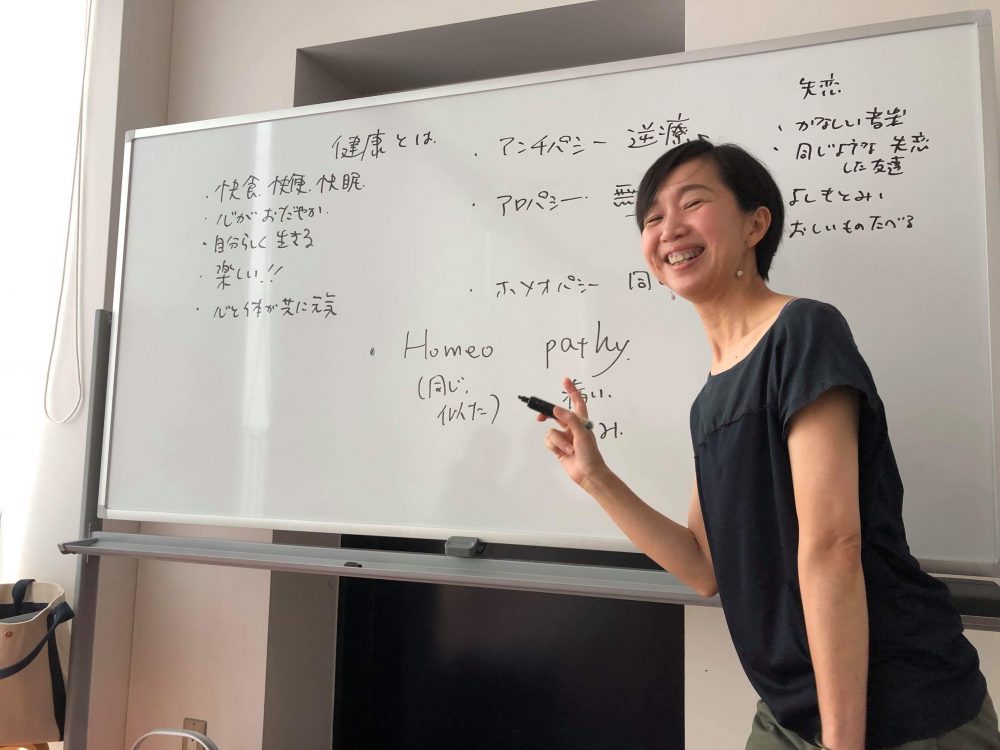 健康とは
・快食、快便、快眠
・心がおだやか
・自分らしく生きる
・楽しい!!
・心と体が共に元気
・アンチパシー 逆療
・アロパシー 無
・ホメオパシー 同
・Homeo pathy
(同じ、 病い、
似た) み、
失恋
・かなしい音楽
・同じような失恋
した友達
よしもとみ
おしいものたべる